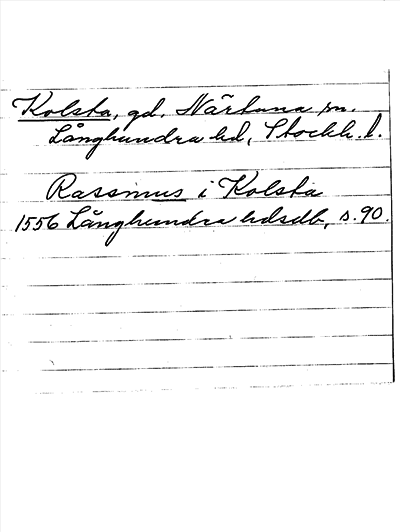 Kolsta, gd. Närtuna sn.
Långhundra hd, Stockh. l.
Rassmus i Kolsta
1556 Långhundra hdsdb, s. 90.